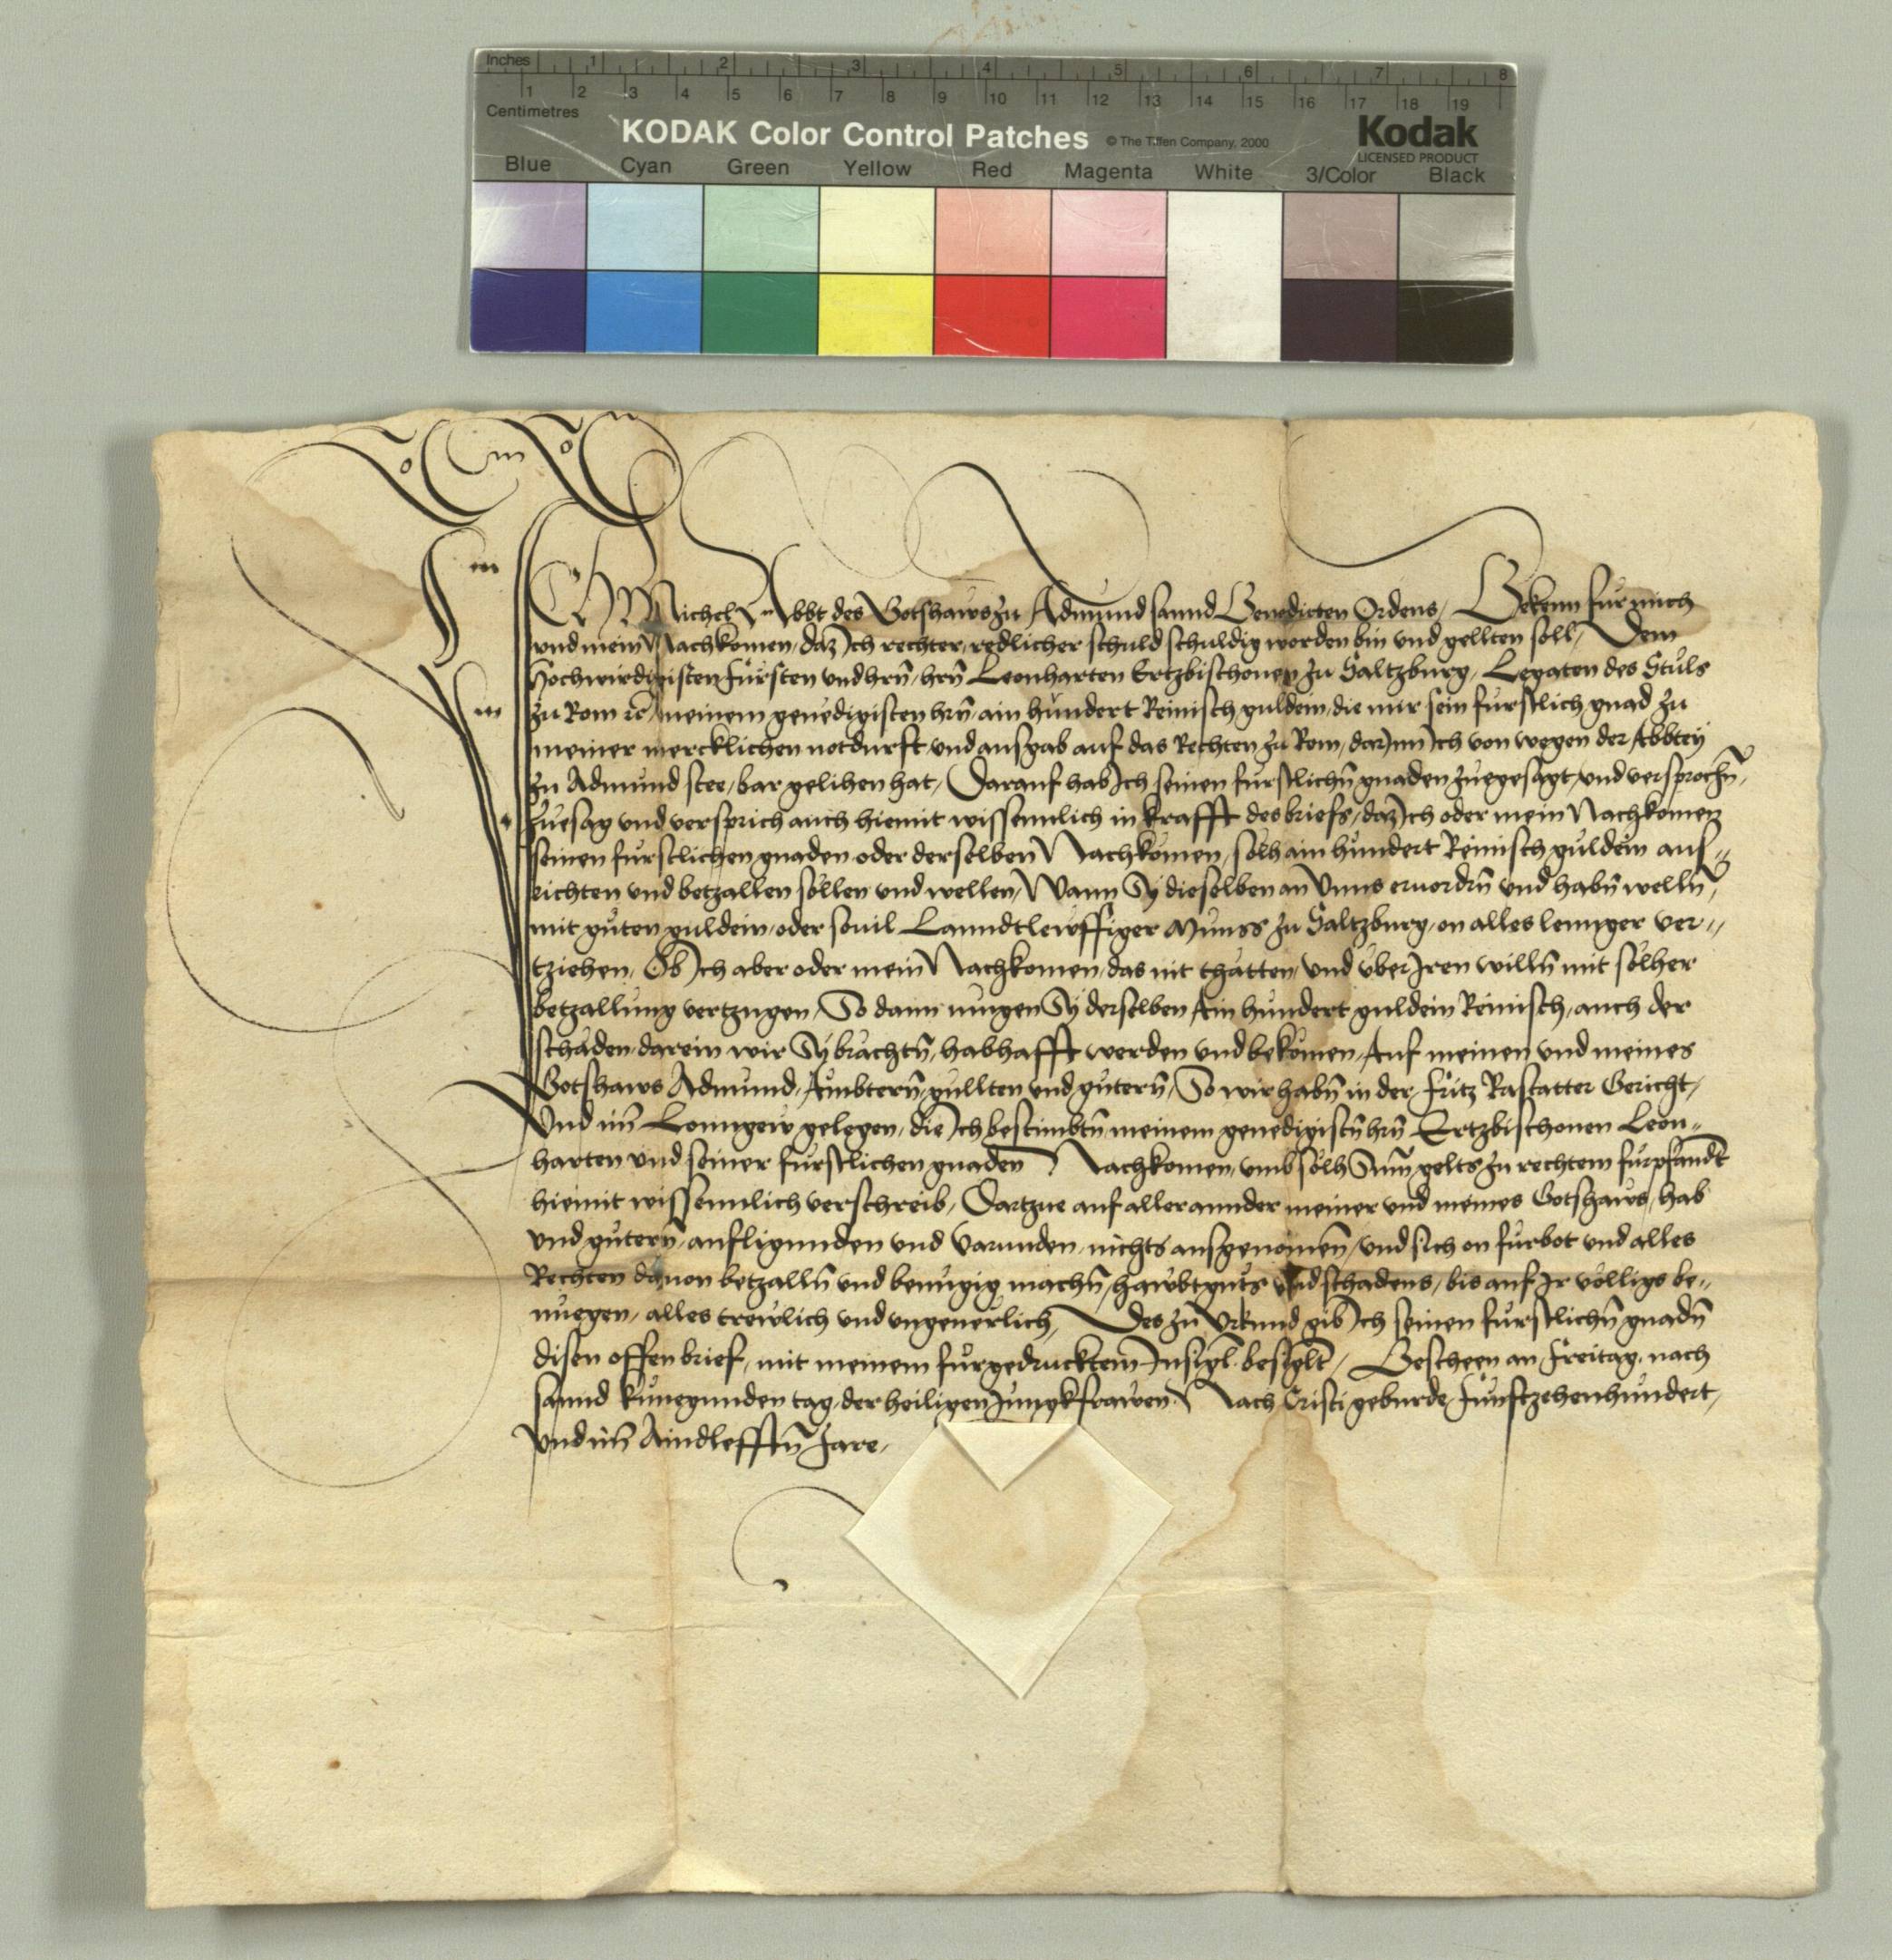 Inches 1 2 3 4 5 6 7 8
1 2 3 4 5 6 7 8 9 10 11 12 13 14 15 16 17 18 19
Centimetres
KODAK Color Control Patches © The Tiffen Company, 2000 Kodak
LICENSED PRODUCT
Blue Cyan Green Yellow Red Magenta White 3/Color Black
ICH Michel Abbt des Gotshaws zu Admund sannd Benedicten Ordens, Bekenn fur mich
und mein Nachkomen, daz Ich rechter, redlicher schuld schuldig worden bin und gellten soll, Dem
Hochwirdigisten fürsten und hrn̄, hrn̄ Leonharten Ertzbischouen zu Saltzburg, Legaten des Stůls
zu Rom ꝛc̄, meinem genedigisten hrn̄, ain hundert Reinisch guldein, die mir sein furstlich gnad zu
meiner mercklichen notdurft, und ausgab auf das Rechten zu Rom, darInn Ich von wegen der Abbtey
zu Admund stee, bar gelihen hat, Darauf hab Ich seinen furstlichn̄ gnaden zuegesagt, und versprochn̄,
zuesag und versprich auch hiemit wissennlich in krafft des briefs, daz Ich oder mein Nachkomen
seinen furstlichen gnaden oder derselben Nachkomen, solh ain hundert Reinisch guldein aus„
richten und betzallen sollen und wellen, Wann Sy dieselben an Unns eruordrn̄ und habn̄ welln̄,
mit guten guldein, oder souil Lanndtlewffiger Munss zu Saltzburg, on alles lennger ver„
tziehen, Ob Ich aber oder mein Nachkomen, das nit thatten, und uber Iren willn̄ mit solher
betzallung vertzugen, So dann mugen Sy derselben Ain hundert guldein Reinisch, auch der
schaden, darein wir Sy brachtn̄, habhafft werden und bekomen, Auf meinen und meines
Gotshaws Admund, Ambtern̄, gullten und gutern̄, So wir habn̄ in der Fritz Rastatter Gericht,
Und im̄ Lonngew gelegen, die Ich bestimbtn̄ meinem genedigistn̄ hrn̄ Ertzbischouen Leon„
harten und seiner furstlichen gnaden Nachkomen, umb solh Sum̄ gelts zu rechtem furpfandt
hiemit wissennlich verschreib, Dartzue auf aller annder meiner und meines Gotshaws, hab
und gutern̄, aufligunden und Varunden, nichts ausgenomen̄, und sich on furbot und alles
Rechten dauon betzalln̄ und benugig machn̄, hawbtguts und schadens, bis auf Ir volligs be„
nuegen, alles trewlich und ungeuerlich, Des zu Urkund gib Ich seinen furstlichn̄ gnadn̄
disen offen brief, mit meinem furgedrucktem Insigl besiglt, Bescheen an Freitag, nach
sannd kunegunden tag, der heiligen Jungkfrawen, Nach Cristi geburde, funfftzehenhundert,
Und im̄ Aindlefftn̄ Jare,